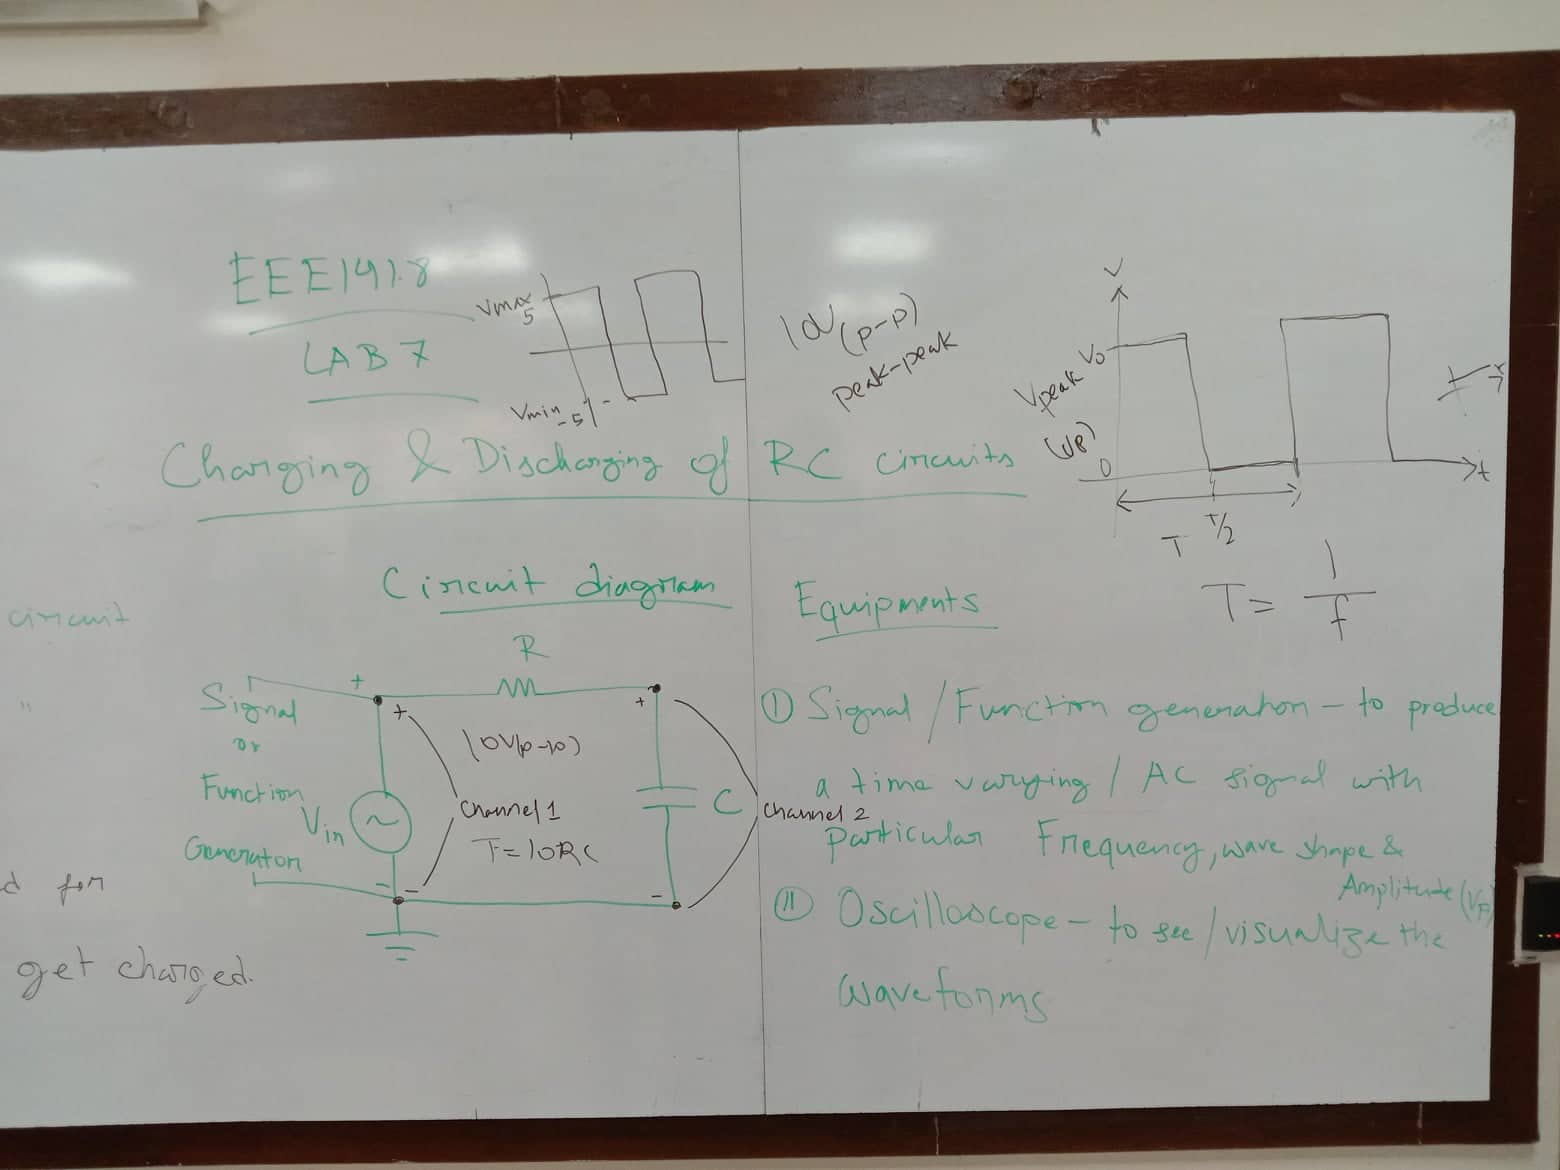 EEE141.8
LAB 7
Vmax
5
Vmin
-5
10V (p-p)
peak-peak
V
Vpeak V0
(VP)
0
t
T/2
T
T = 1/f
Charging & Discharging of RC circuits
circuit
"
d for
get charged.
Circuit diagram
R
Signal
or
Function
Generator
Vin
+
+
+
-
-
-
C
Channel 1
T = 10RC
Channel 2
Equipments
① Signal / Function generation - to produce
a time varying / AC signal with
particular Frequency, wave shape &
Amplitude (VP)
② Oscilloscope - to see / visualize the
waveforms